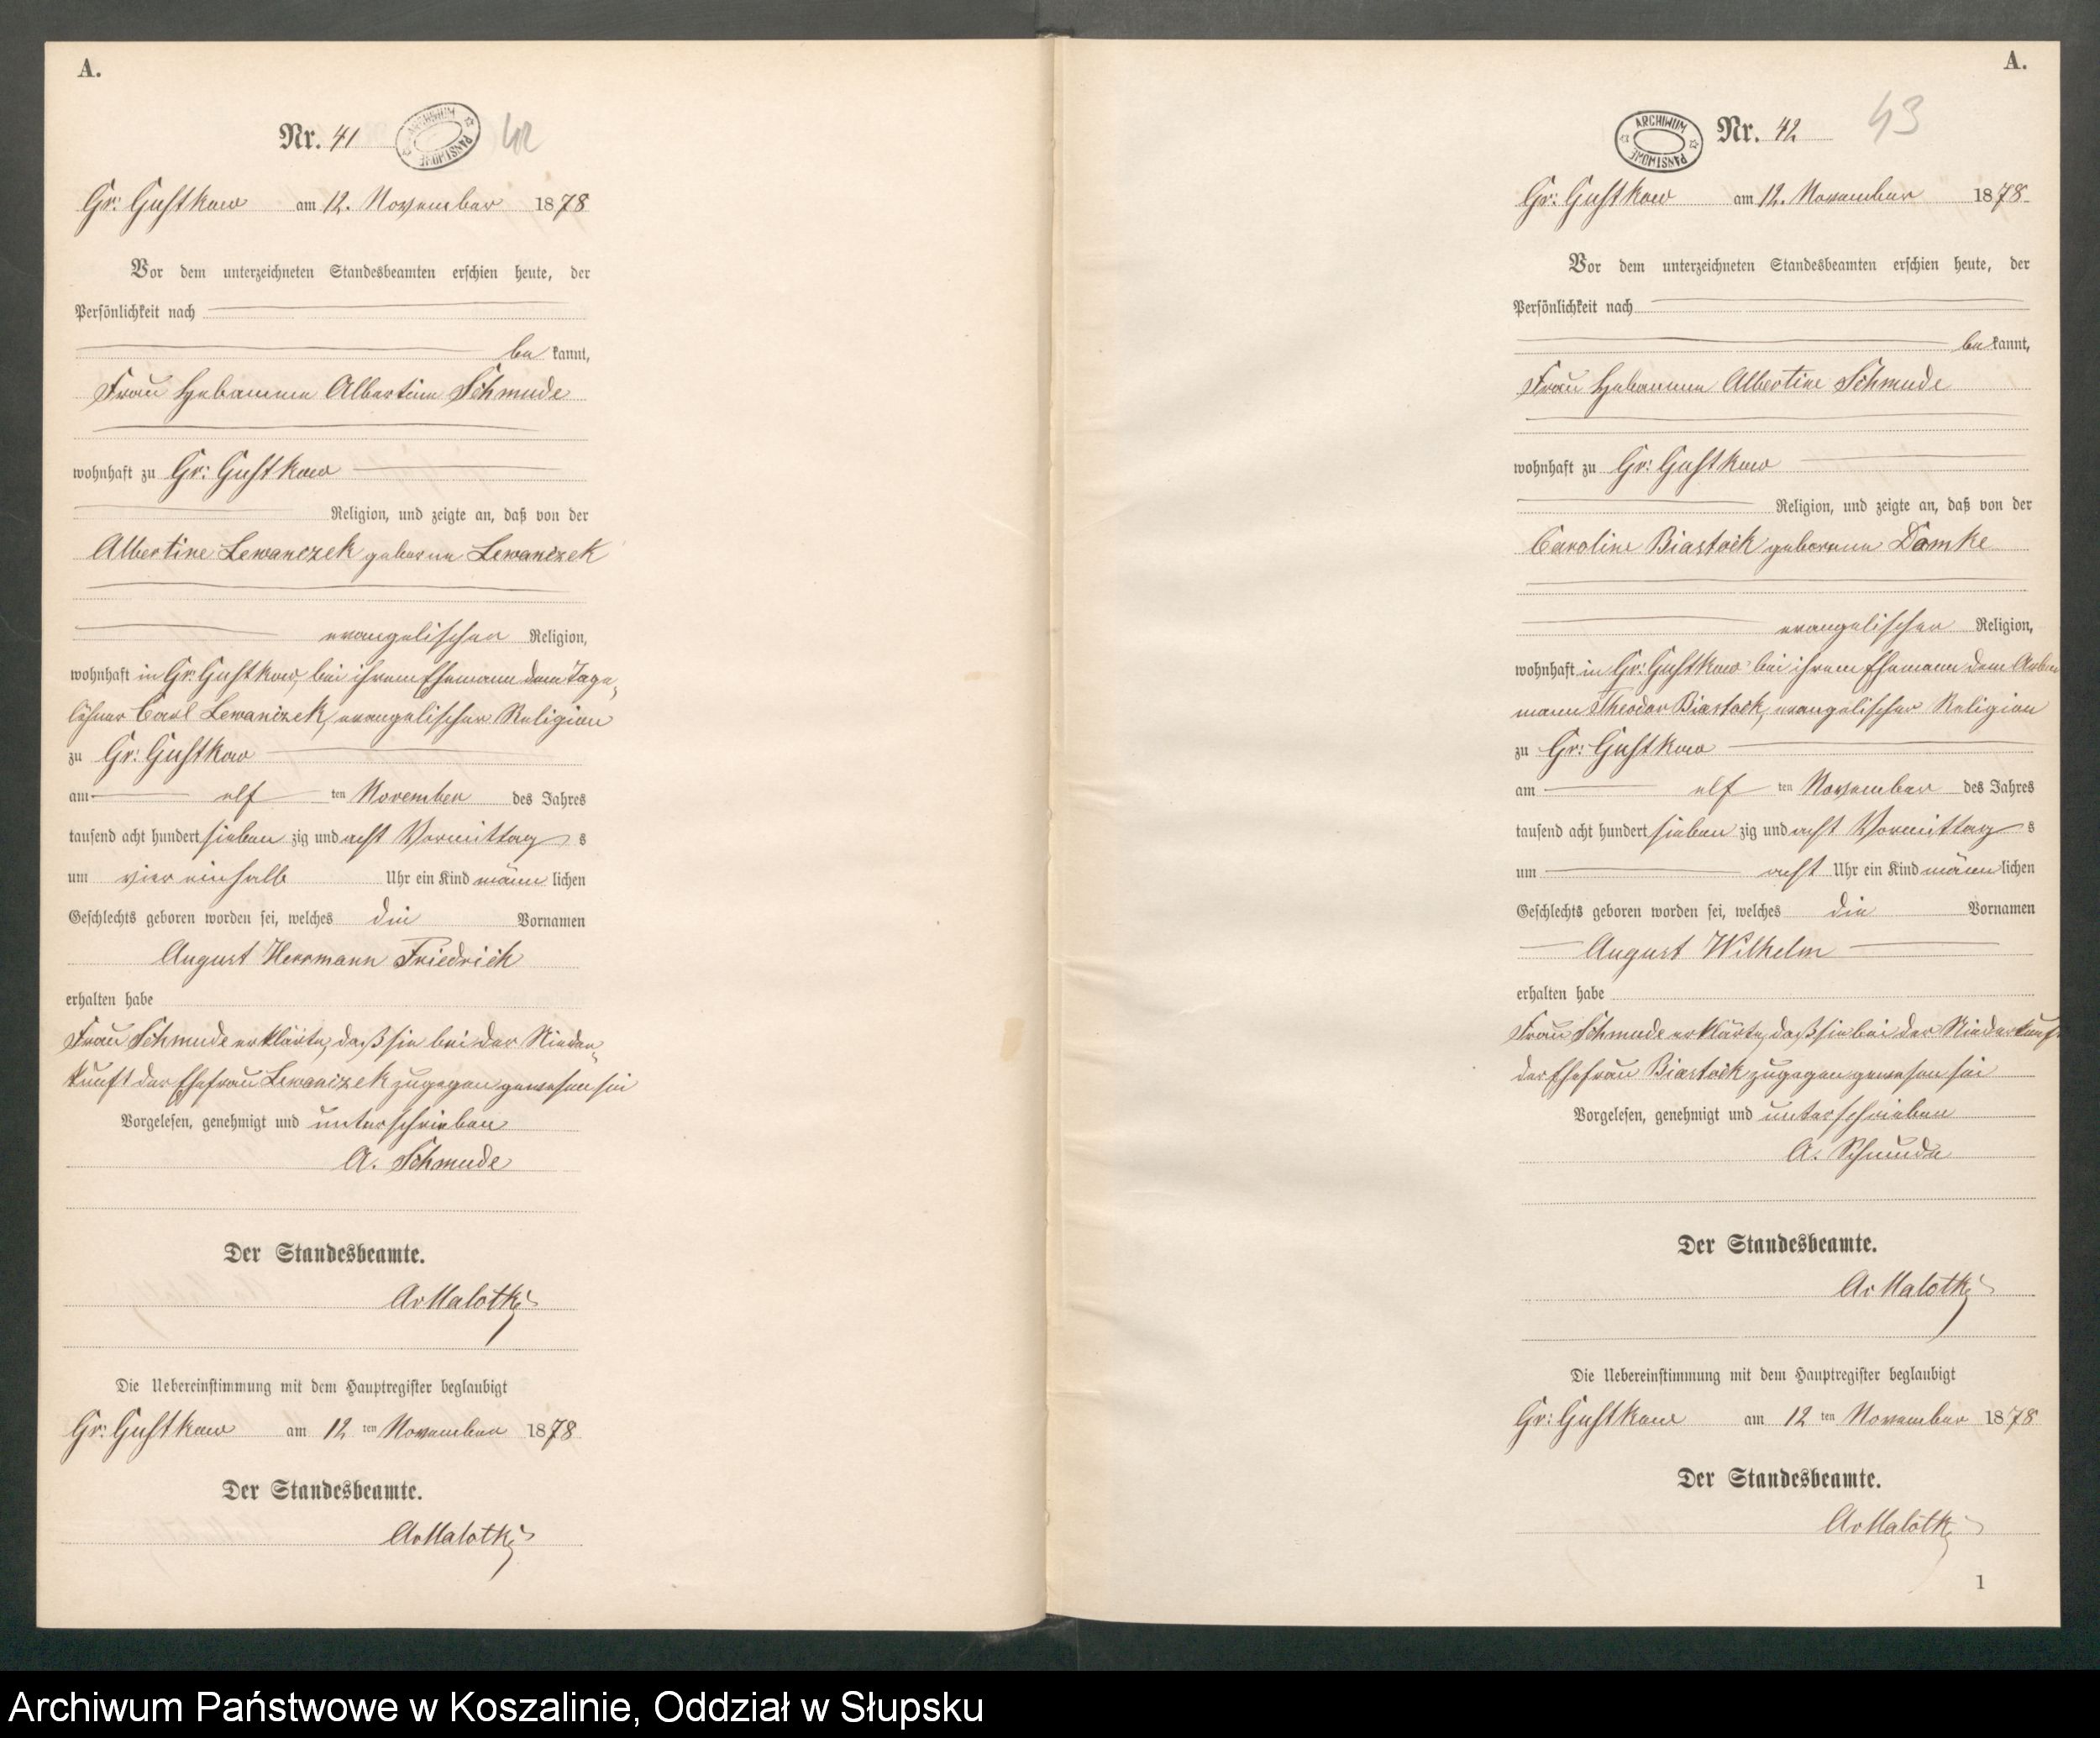 A.
Nr. 41
ARCHIWUM PAŃSTWOWE
42
Gr: Gustkow am 12. November 1878
Vor dem unterzeichneten Standesbeamten erschien heute, der
Persönlichkeit nach
be kannt,
Frau Hebamme Albertine Schmude
wohnhaft zu Gr: Gustkow
Religion, und zeigte an, daß von der
Albertine Lewanczek geborne Lewanczek
evangelischer Religion,
wohnhaft in Gr: Gustkow, bei ihrem Ehemann dem Tage-
löhner Carl Lewanczek, evangelischer Religion
zu Gr: Gustkow
am elf ten November des Jahres
tausend acht hundert sieben zig und acht Vormittag s
um vier einhalb Uhr ein Kind männ lichen
Geschlechts geboren worden sei, welches die Vornamen
August Herrmann Friedrich
erhalten habe
Frau Schmude erklärte, daß sie bei der Nieder-
kunft der Ehefrau Lewanczek zugegen gewesen sei
Vorgelesen, genehmigt und unterschrieben
A. Schmude
Der Standesbeamte.
AvMalotki
Die Uebereinstimmung mit dem Hauptregister beglaubigt
Gr: Gustkow am 12 ten November 1878
Der Standesbeamte.
AvMalotki
A.
ARCHIWUM PAŃSTWOWE
Nr. 42
43
Gr: Gustkow am 12. November 1878
Vor dem unterzeichneten Standesbeamten erschien heute, der
Persönlichkeit nach
be kannt,
Frau Hebamme Albertine Schmude
wohnhaft zu Gr: Gustkow
Religion, und zeigte an, daß von der
Caroline Biastock geborene Domke
evangelischer Religion,
wohnhaft in Gr: Gustkow bei ihrem Ehemann dem
mann Theodor Biastock, evangelischer Religion
zu Gr: Gustkow
am elf ten November des Jahres
tausend acht hundert sieben zig und acht Vormittag s
um acht Uhr ein Kind männ lichen
Geschlechts geboren worden sei, welches die Vornamen
August Wilhelm
erhalten habe
Frau Schmude erklärte, daß sie bei der Niederkunft
der Ehefrau Biastock zugegen gewesen sei
Vorgelesen, genehmigt und unterschrieben
A. Schmude
Der Standesbeamte.
Av Malotki
Die Uebereinstimmung mit dem Hauptregister beglaubigt
Gr: Gustkow am 12 ten November 1878
Der Standesbeamte.
AvMalotki
1
Archiwum Państwowe w Koszalinie, Oddział w Słupsku